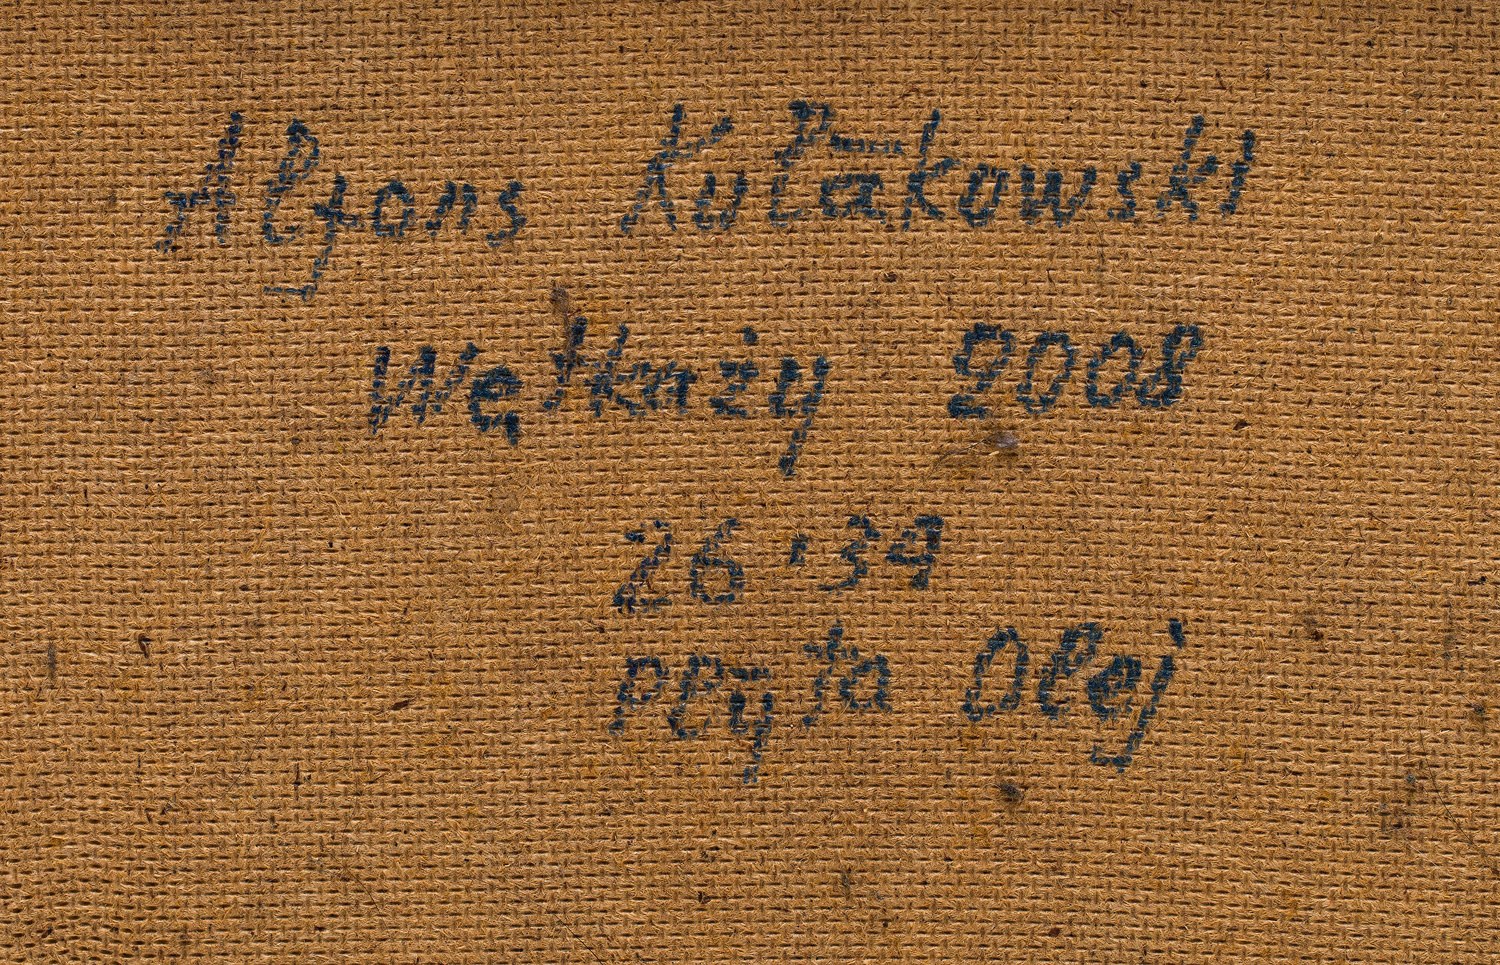 Alfons Kułakowski
Wętkaży 2008
26 · 34
Płyta Olej